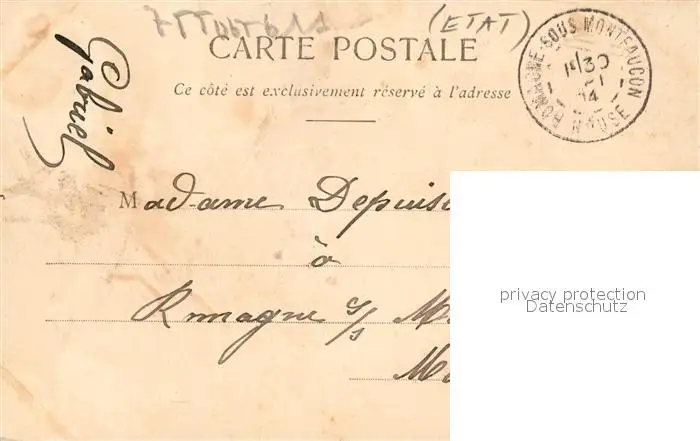 (ETAT)
CARTE POSTALE
Ce côté est exclusivement réservé à l'adresse
ROMAGNE-SOUS MONTFAUCON
MEUSE
14
Gabriel
Madame Depuis
à
Romagne s/s M
M
privacy protection
Datenschutz